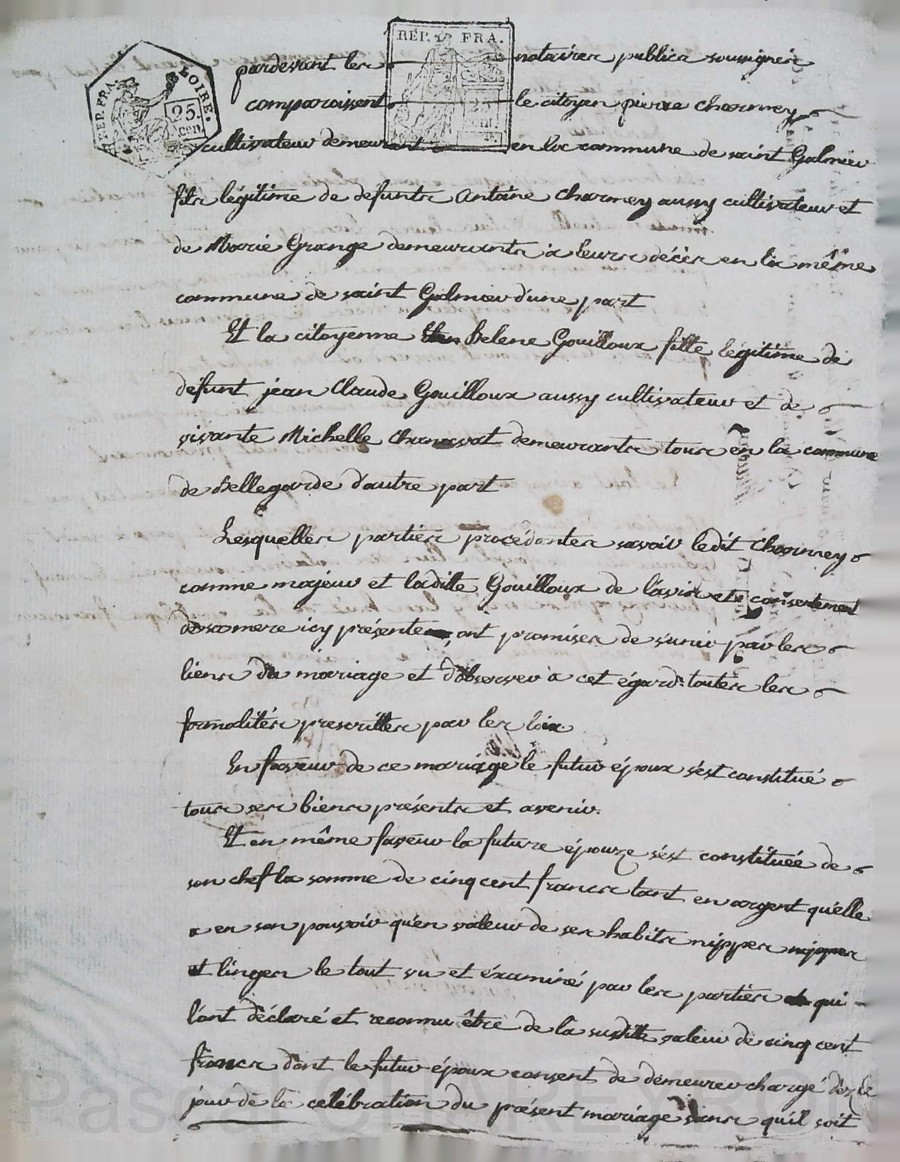 REP. FRA. LOIRE. 25. cen.
REP. FRA.
25 cent
pardevant les notaires publics soussignés
comparaissent le citoyen pierre charmey
cultivateur demeurant en loc commune de saint Galmier
fils légitime de defunts Antoine charmey aussy cultivateur et
de Marie Grange demeurants a leurs décès en la même
commune de saint Galmier d'une part
Et la citoyenne helene Gouilloux fille légitime de
défunt jean Claude Gouilloux aussy cultivateur et de
vivante Michelle demeurants tous en la commune
de Bellegarde d'autre part
Lesquelles parties procédantes savoir ledit charmey
comme majeur et laditte Gouilloux de l'avis et consentement
de sa mere icy présente ont promises de s'unir par les
liens du mariage et d'observer a cet égard toutes les
formalités prescrittes par les loix
En faveur de ce mariage le futur époux s'est constitué
tous ses biens présents et avenir.
Et en même faveur la future épouze s'est constituée de
son chef la somme de cinq cent francs tant en argent qu'elle
a en son pouvoir qu'en valeur de ses habits nippes nippes
et linges le tout vu et éxaminé par les parties qui
l'ont déclaré et reconnu être de la susditte valeur de cinq cent
francs dont le futur époux consent de demeurer chargé dez le
jour de la celébration du présent mariage sans qu'il soit